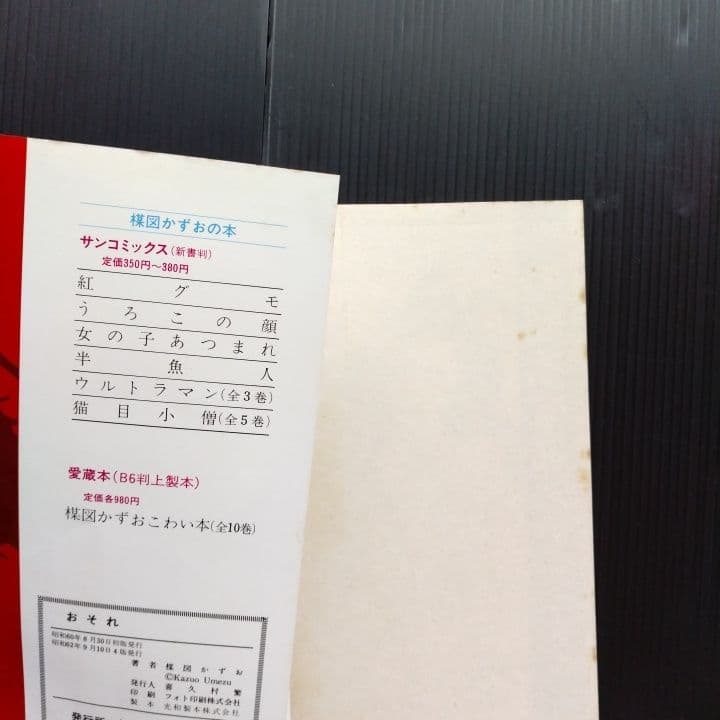 楳図かずおの本
サンコミックス(新書判)
定価350円〜380円
紅グモ
うろこの顔
女の子あつまれ
半魚人
ウルトラマン(全3巻)
猫目小僧(全5巻)
愛蔵本(B6判上製本)
定価各980円
楳図かずおこわい本(全10巻)
おそれ
昭和60年8月30日初版発行
昭和62年9月10日4版発行
著者 楳図かずお
©Kazuo Umezu
発行人 喜久村繁
印刷 フォト印刷株式会社
製本 光和製本株式会社
発行所